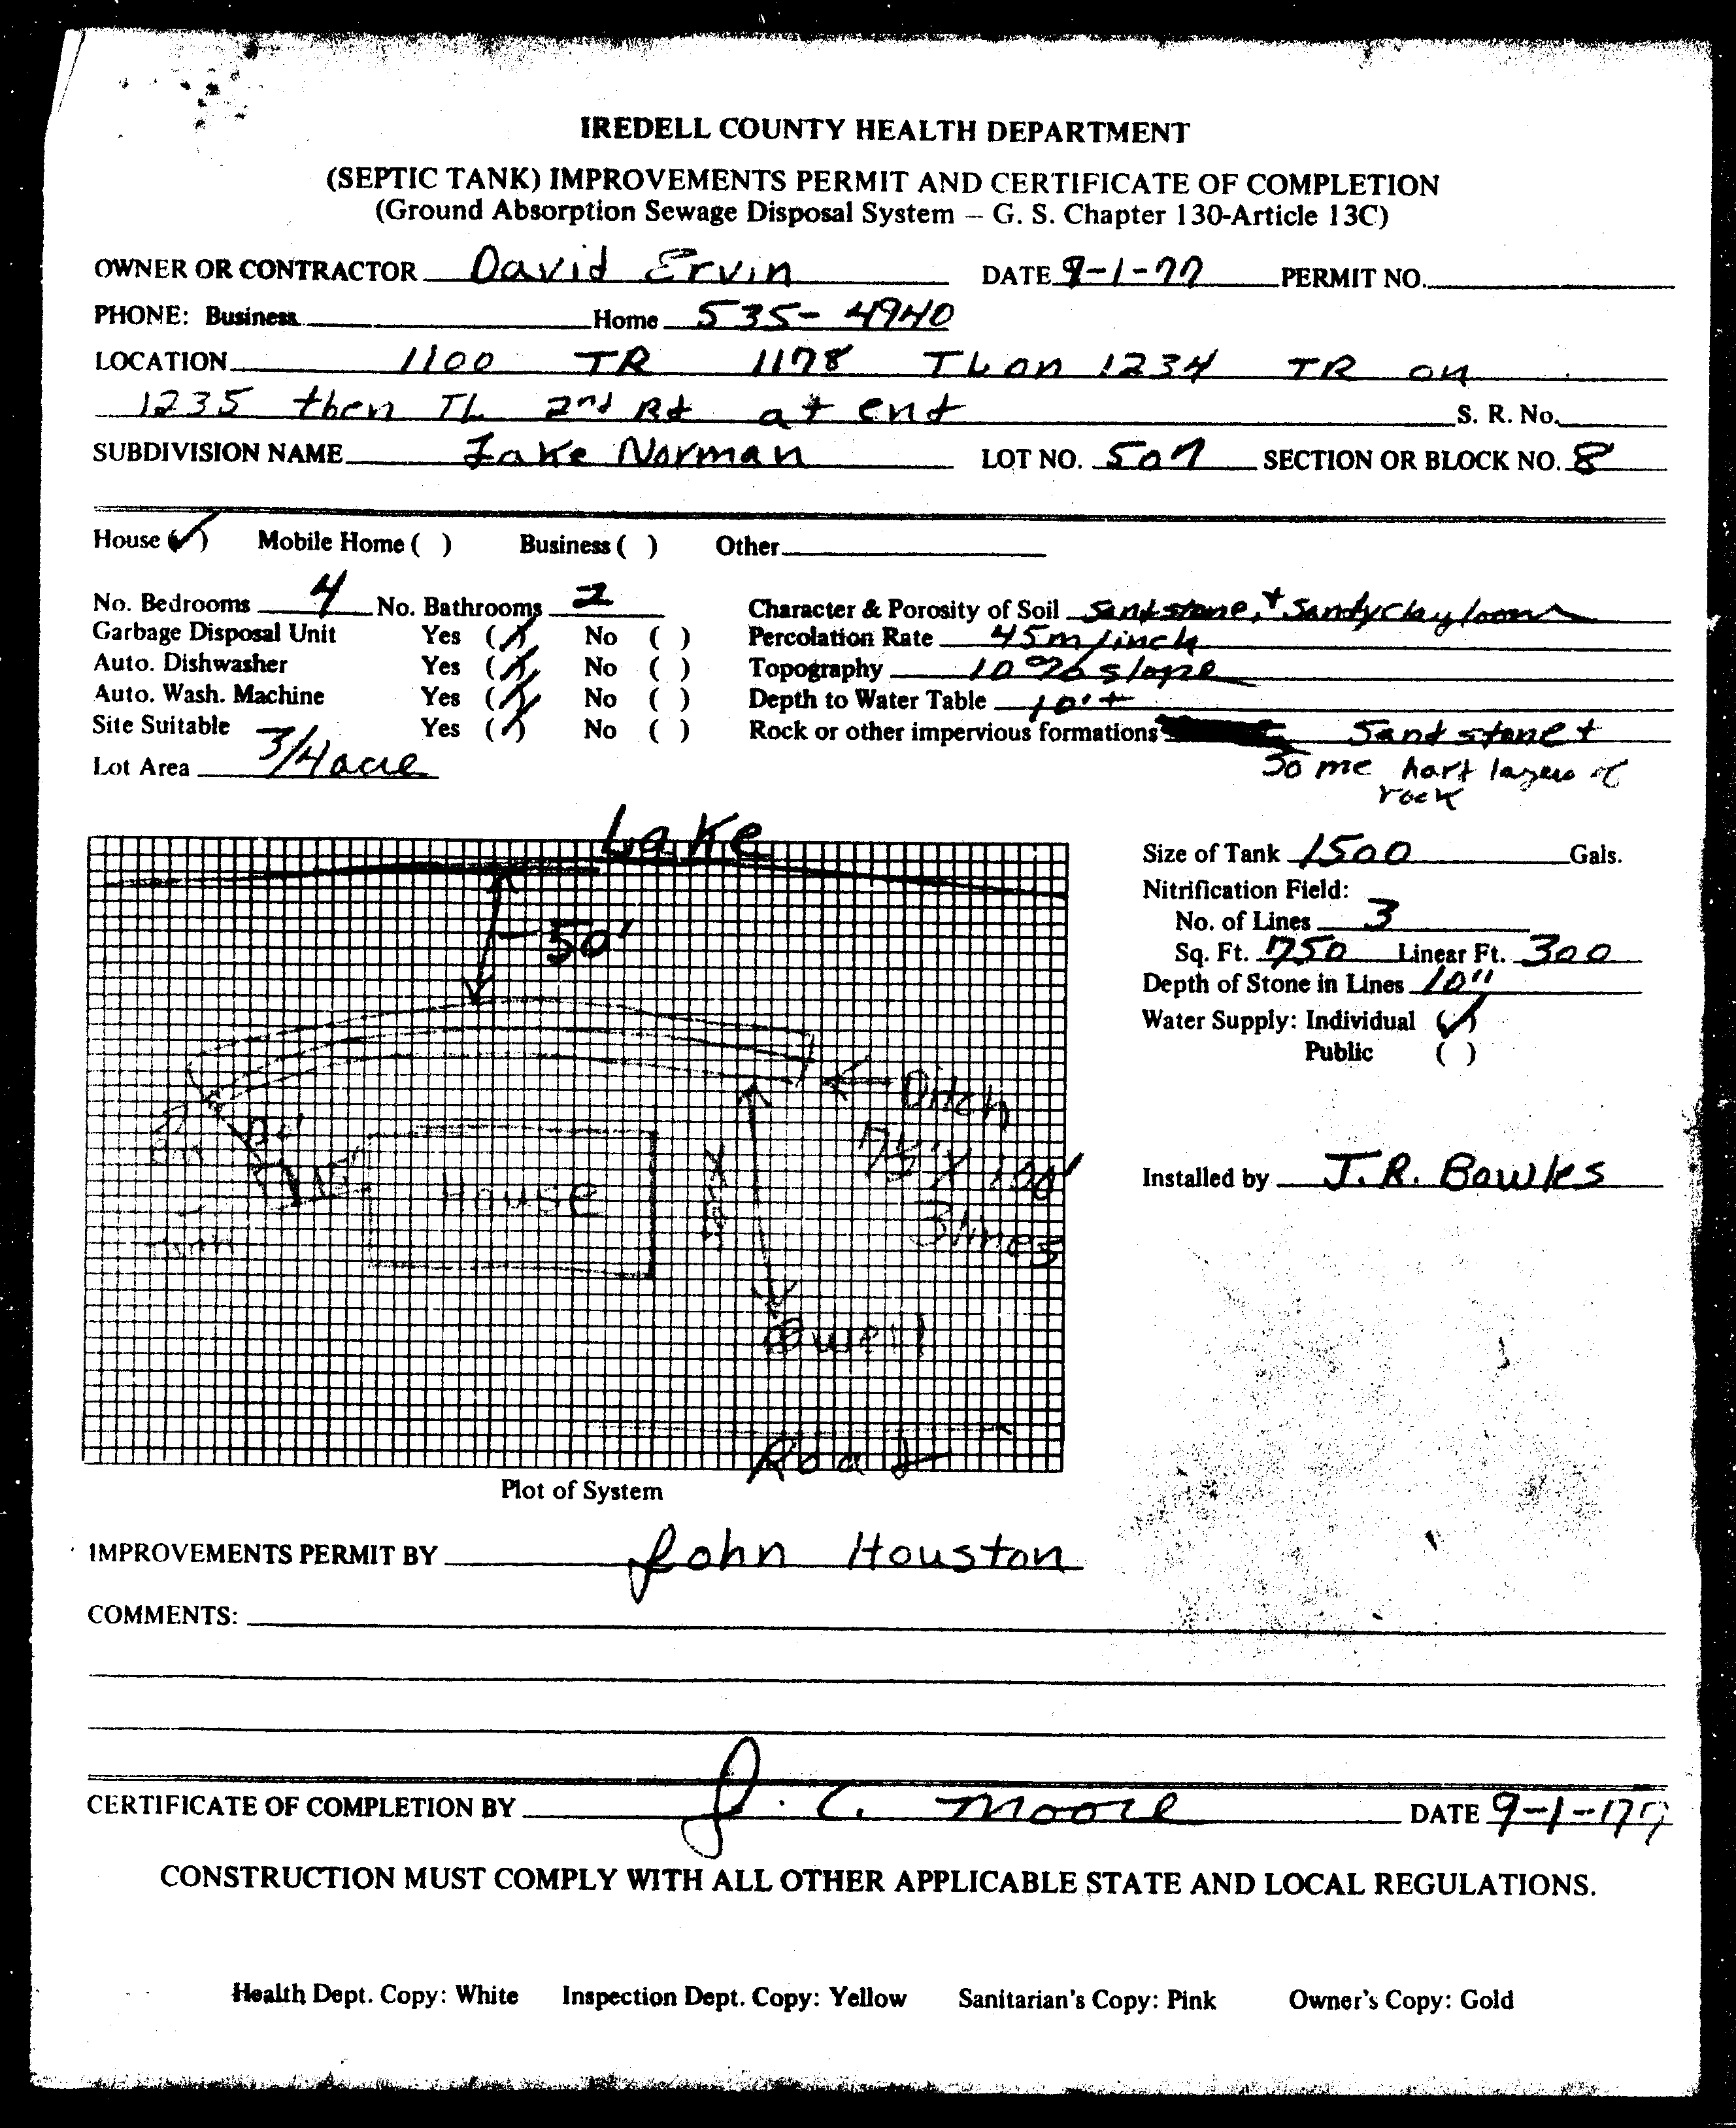 IREDELL COUNTY HEALTH DEPARTMENT
(SEPTIC TANK) IMPROVEMENTS PERMIT AND CERTIFICATE OF COMPLETION
(Ground Absorption Sewage Disposal System – G. S. Chapter 130-Article 13C)
OWNER OR CONTRACTOR David Ervin DATE 9-1-77 PERMIT NO.
PHONE: Business Home 535-4940
LOCATION 1100 TR 1178 TL on 1234 TR on
1235 then TL 2nd Rd at end S. R. No.
SUBDIVISION NAME Lake Norman LOT NO. 507 SECTION OR BLOCK NO. 8
House (✓) Mobile Home ( ) Business ( ) Other
No. Bedrooms 4 No. Bathrooms 2 Character & Porosity of Soil Sandstone, + Sandy clay loam
Garbage Disposal Unit Yes (✓) No ( ) Percolation Rate 45m/inch
Auto. Dishwasher Yes (✓) No ( ) Topography 10% slope
Auto. Wash. Machine Yes (✓) No ( ) Depth to Water Table 10'+
Site Suitable Yes (✓) No ( ) Rock or other impervious formations Sandstone +
Lot Area 3/4 acre Some hard layers of
rock
Lake
50'
Ditch
House
100'
3 lines
well
Road
Size of Tank 1500 Gals.
Nitrification Field:
No. of Lines 3
Sq. Ft. 750 Linear Ft. 300
Depth of Stone in Lines 10"
Water Supply: Individual (✓)
Public ( )
Installed by J.R. Bowles
Plot of System
IMPROVEMENTS PERMIT BY John Houston
COMMENTS:
CERTIFICATE OF COMPLETION BY J. C. Moore DATE 9-1-77
CONSTRUCTION MUST COMPLY WITH ALL OTHER APPLICABLE STATE AND LOCAL REGULATIONS.
Health Dept. Copy: White Inspection Dept. Copy: Yellow Sanitarian's Copy: Pink Owner's Copy: Gold